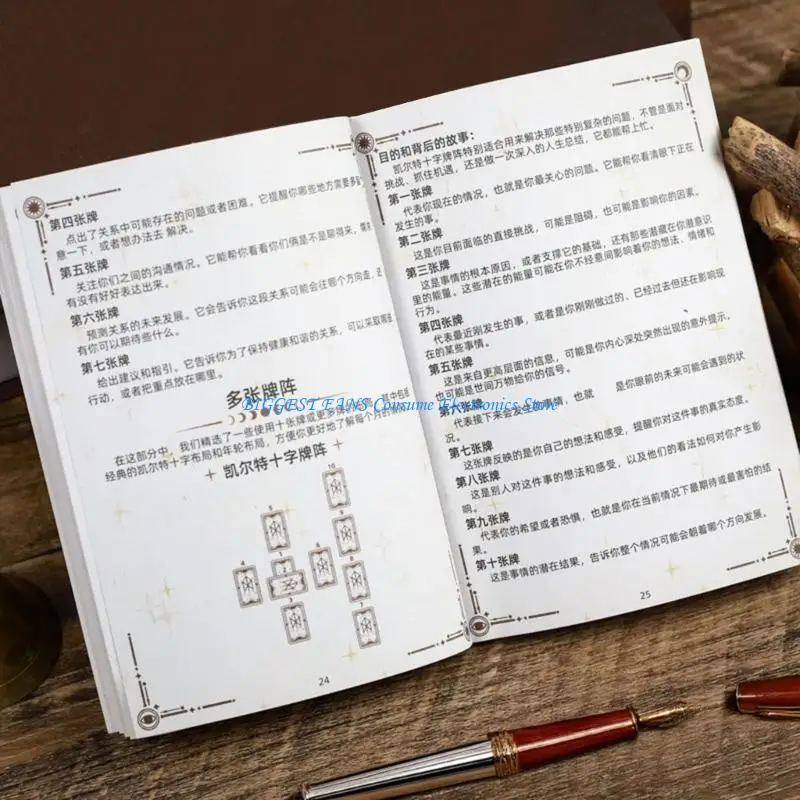 第四张牌
点出了关系中可能存在的问题或者困难。它提醒你哪些地方需要多
意一下，或者想办法去 解决。
第五张牌
关注你们之间的沟通情况。它能帮你看看你们俩是不是聊得来，需
有没有好好表达出来。
第六张牌
预测关系的未来发展。它会告诉你这段关系可能会往哪个方向走，
有你可以期待些什么。
第七张牌
给出建议和指引。它告诉你为了保持健康和谐的关系，可以采取哪
行动，或者把重点放在哪里。
多张牌阵
在这部分中，我们精选了一些使用十张牌或更多牌
经典的凯尔特十字布局和年轮布局，方便你更好地了解每个月的
凯尔特十字牌阵
10
5
9
4
1
2
6
8
3
7
24
目的和背后的故事：
凯尔特十字牌阵特别适合用来解决那些特别复杂的问题，不管是面对
挑战、抓住机遇，还是做一次深入的人生总结，它都能帮上忙。
第一张牌
代表你现在的情况，也就是你最关心的问题。它能帮你看清眼下正在
发生的事。
第二张牌
这是你目前面临的直接挑战，可能是阻碍，也可能是影响你的因素。
第三张牌
这是事情的根本原因，或者支撑它的基础，还有那些潜藏在你潜意识
里的能量。这些潜在的能量可能在你不经意间影响着你的想法、情绪和
行为。
第四张牌
代表最近刚发生的事，或者是你刚刚做过的、已经过去但还在影响现
在的某些事情。
第五张牌
这是来自更高层面的信息，可能是你内心深处突然出现的意外提示，
也可能是世间万物给你的信号。
第六张牌
代表接下来会发生的事情，也就 是你眼前的未来可能会遇到的状
况。
第七张牌
这张牌反映的是你自己的想法和感受，提醒你对这件事的真实态度。
第八张牌
这是别人对这件事的想法和感受，以及他们的看法如何对你产生影
响。
第九张牌
代表你的希望或者恐惧，也就是你在当前情况下最期待或最害怕的结
果。
第十张牌
这是事情的潜在结果，告诉你整个情况可能会朝着哪个方向发展。
25
BIGGEST FANS Consume Electronics Store